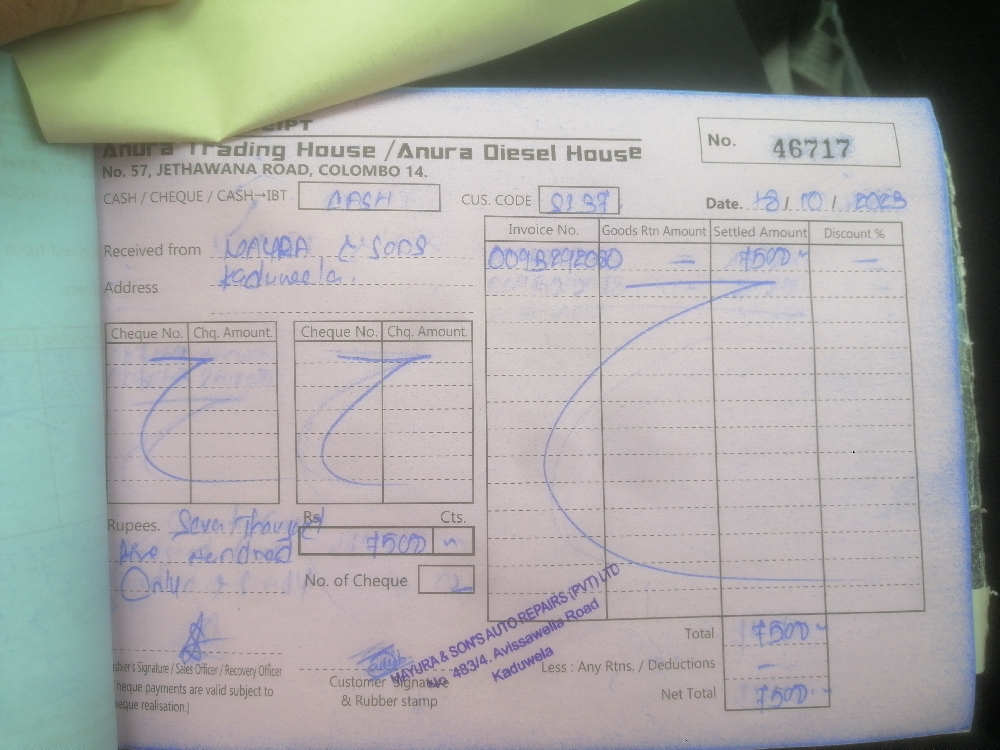 EIPT
Anura Trading House /Anura Diesel House
No. 57, JETHAWANA ROAD, COLOMBO 14.
No. 46717
CASH / CHEQUE / CASH→IBT CASH CUS. CODE Date. 18 / 10 / 2023
Received from MAYURA & SONS
Address Kaduwela.
Invoice No. Goods Rtn Amount Settled Amount Discount %
— 7500 —
Cheque No. Chq. Amount. Cheque No. Chq. Amount.
Rupees. Seven Thousand
Five Hundred
Only
Rs. Cts.
7500
No. of Cheque
Total 7500
Less : Any Rtns. / Deductions —
Net Total 7500
MAYURA & SON'S AUTO REPAIRS (PVT) LTD
No 483/4. Avissawella Road
Kaduwela
shier's Signature / Sales Officer / Recovery Officer
heque payments are valid subject to
eque realisation.)
Customer Signature
& Rubber stamp